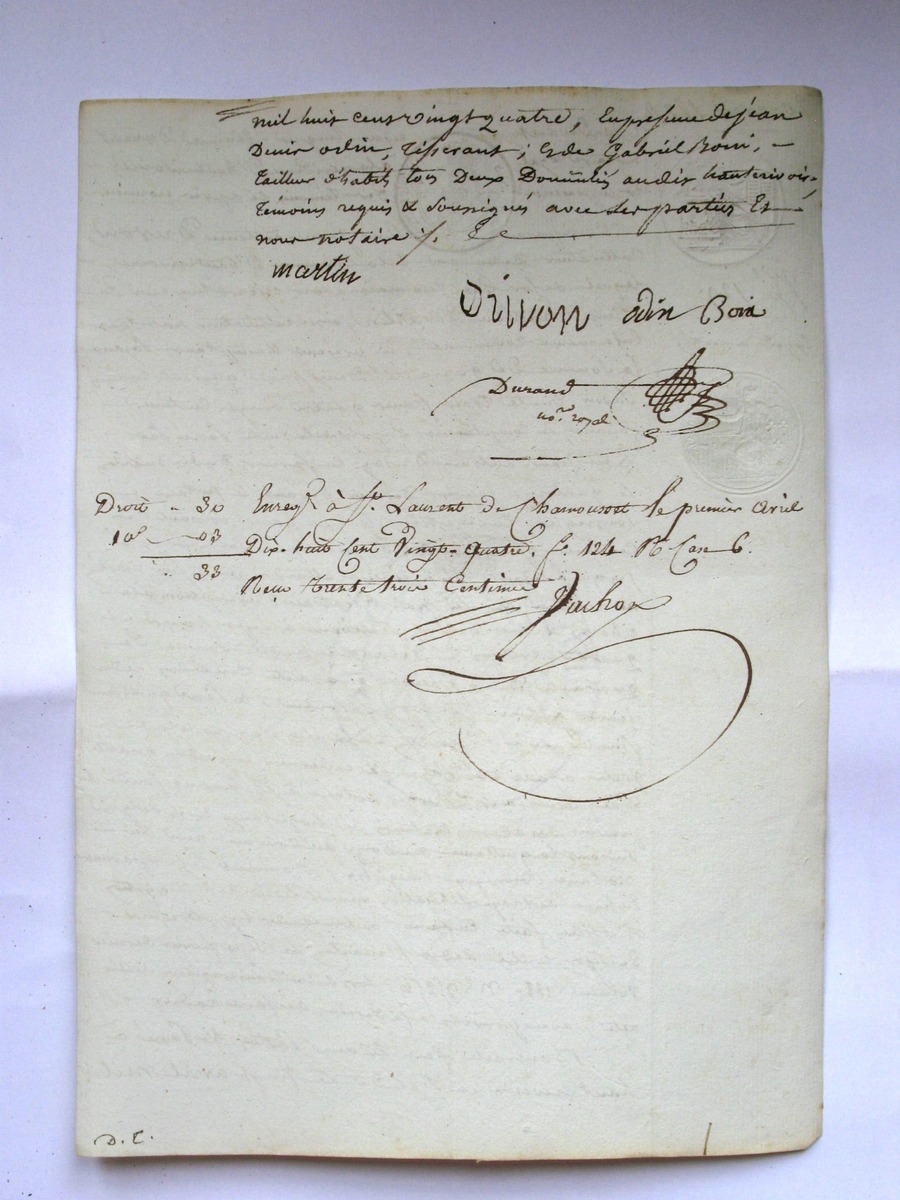 mil huit cent vingt quatre, En presence de jean
Denis odin, tisserant; Et de Gabriel Boin,
tailleur d'habits tous Deux Domiciliés audit hauterivoire,
témoins requis & soussignés avec les parties Et
nous notaire ./.
martin
Drivon odin Boin
Durand
no.re royal
Droit - 30 Enregé à St. Laurent De Chamousset le premier avril
10e 03 Dix-huit Cent Vingt-quatre, f. 124 R Case 6.
33 Reçu trente trois Centimes
D. C.